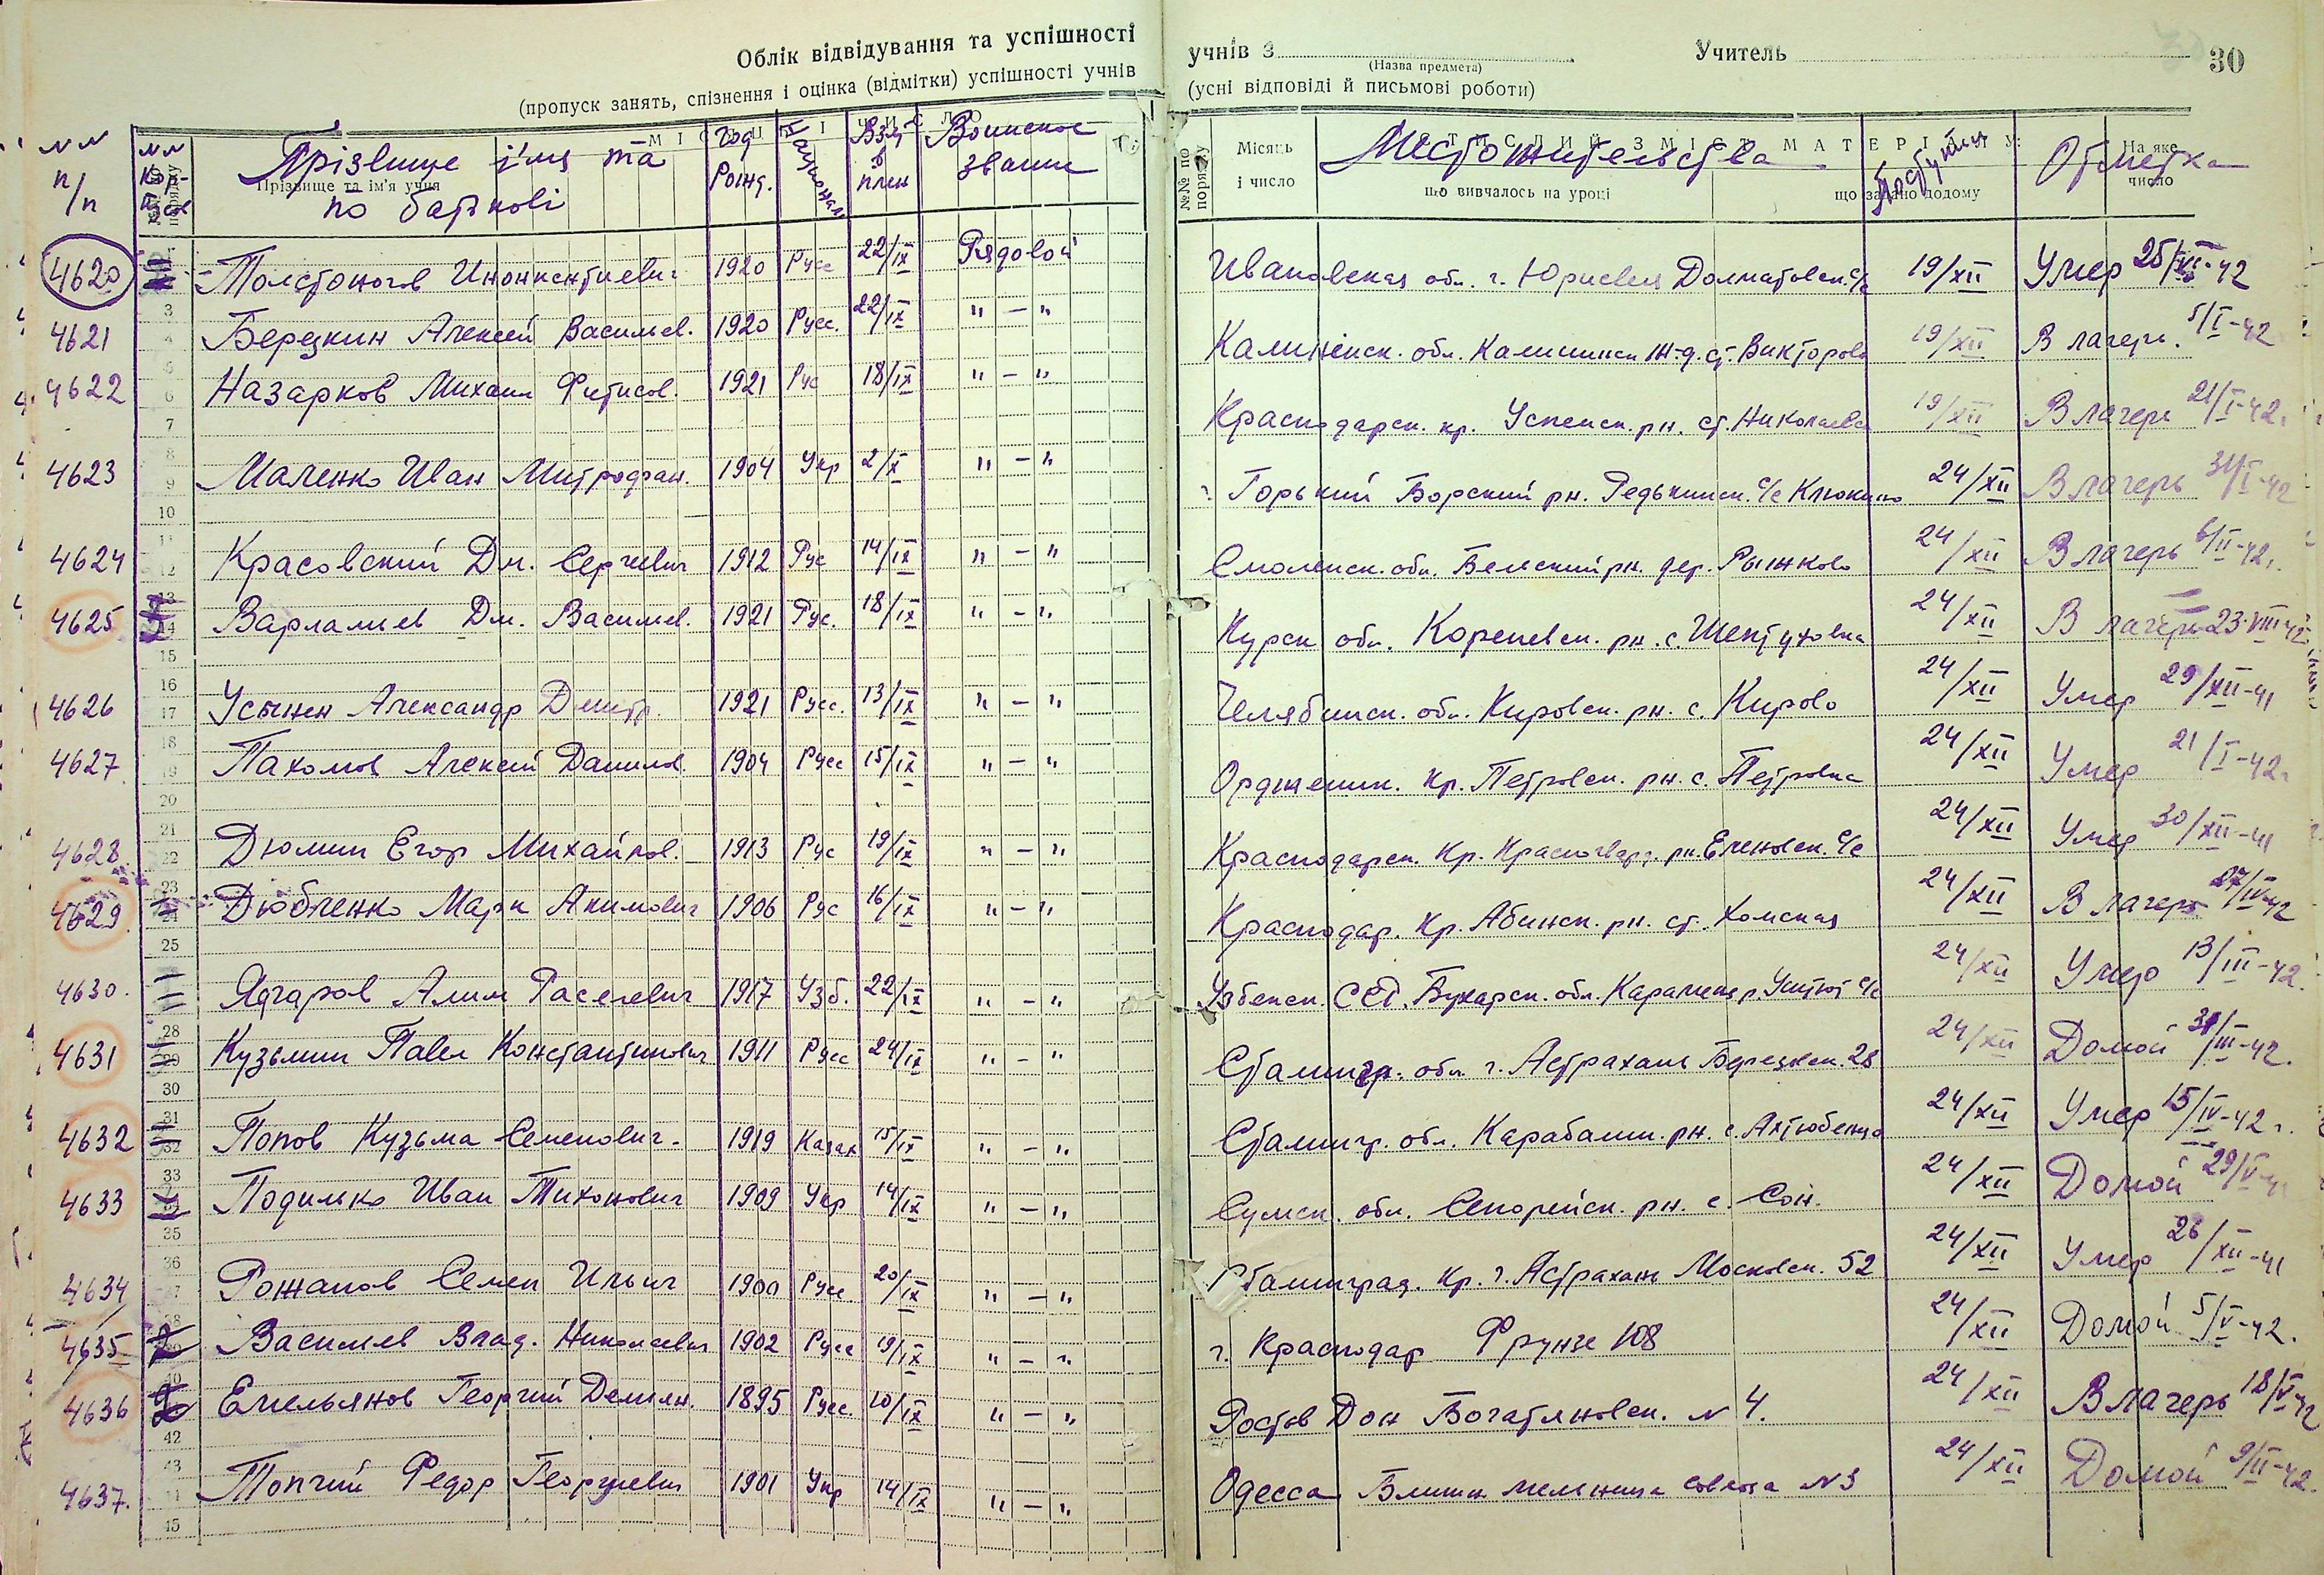 Облік відвідування та успішності учнів з Учитель 30
(Назва предмета)
(пропуск занять, спізнення і оцінка (відмітки) успішності учнів (усні відповіді й письмові роботи)
№№ п/п Прізвище і'мя та по батькові Год рожд. Взят в плен Воинское звание Место жительства Отметка
Прізвище та ім'я учня №№ по порядку Місяць і число що вивчалось на уроці що задано додому На яке число
4620 Толстоногов Инокентиевич 1920 Русс 22/IX Рядовой Ивановская обл. г. Долматовск. с/с 19/XII Умер 42
4621 Березкин Алексей Васильев. 1920 Русс. 22/IX " – " Калининск. обл. ж-д. ст. Викторово 19/XII В лагерь. 5/I-42
4622 Назарков Михаил Фетисов. 1921 Рус 18/IX " – " Краснодарск. кр. Успенск. рн. ст. Николаевск 19/XII В лагерь 21/I-42.
4623 Маленко Иван Митрофан. 1904 Укр 2/X " – " г. Горький Борский рн. Редькинск. с/с Клюкино 24/XII В лагерь 31/I-42
4624 Красовский Дм. Сергиевич 1912 Рус 14/IX " – " Смоленск. обл. Бельский рн. дер. Рыжково 24/XII В лагерь 6/II-42.
4625 Варламиев Дм. Васильев. 1921 Рус. 18/IX " – " Курск обл. Кореневск. рн. с. Шептуховка 24/XII В лагерь 23.VIII-42
4626 Александр Дмитр. 1921 Русс. 13/IX " – " Челябинск. обл. Кировск. рн. с. Кирово 24/XII Умер 29/XII-41
4627 Пахомов Алексей Данилов. 1904 Русс 15/IX " – " Орджоник. Кр. Петровск. рн. с. Петровка 24/XII Умер 21/I-42.
4628 Дюмин Егор Михайлов. 1913 Рус 19/IX " – " Краснодарск. Кр. Красногвард. рн. Еленовск. с/с 24/XII Умер 30/XII-41
4629 Дюбченко Марк Акимович 1906 Рус 16/IX " – " Краснодар. Кр. Абинск. рн. ст. Холмская 24/XII В лагерь 27/IV-42
4630. Ядгаров Алим 1917 Узб. 22/IX " – " Узбекск. ССР. Бухарск. обл. с/с 24/XII Умер 13/III-42.
4631 Кузьмин Павел Константинович 1911 Русс 24/IX " – " Сталингр. обл. г. Астрахань 28 24/XII Домой 31/III-42.
4632 Попов Кузьма Семенович 1919 Казах 15/IX " – " Сталингр. обл. рн. с. 24/XII Умер 15/IV-42 г.
4633 Подилько Иван Тихонович 1909 Укр 14/IX " – " Сумск. обл. рн. с. Сон. 24/XII Домой 29/V-42
4634 Рожанов Семен Ильич 1900 Русс. 20/IX " – " Сталинград. Кр. г. Астрахань Московск. 52 24/XII Умер 26/XII-41
4635 Васильев Влад. Николаевич 1902 Русс 19/IX " – " г. Краснодар Фрунзе 108 24/XII Домой 5/V-42.
4636 Емельянов Георгий Демьян. 1895 Русс. 10/IX " – " Ростов Дон Богатяновск. N 4. 24/XII В лагерь 18/V-42
4637. Топчий Федор Георгиевич 1901 Укр 14/IX " – " Одесса Ближн мельница N3 24/XII Домой 9/II-42.